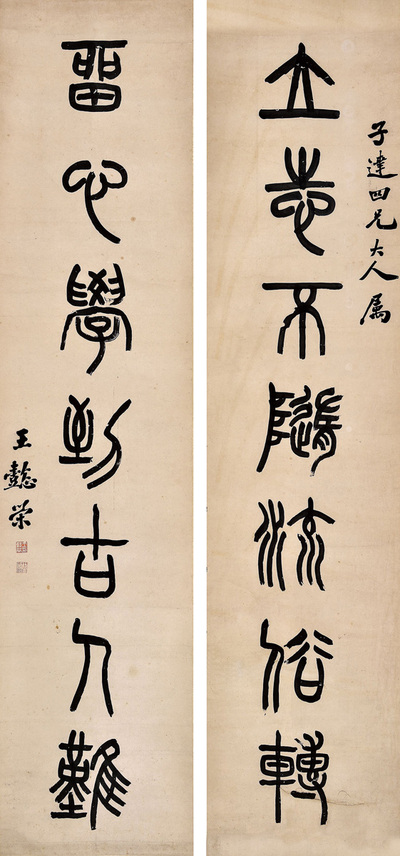 子達四兄大人属
立志不隨流俗轉
留心學到古人難
王懿榮